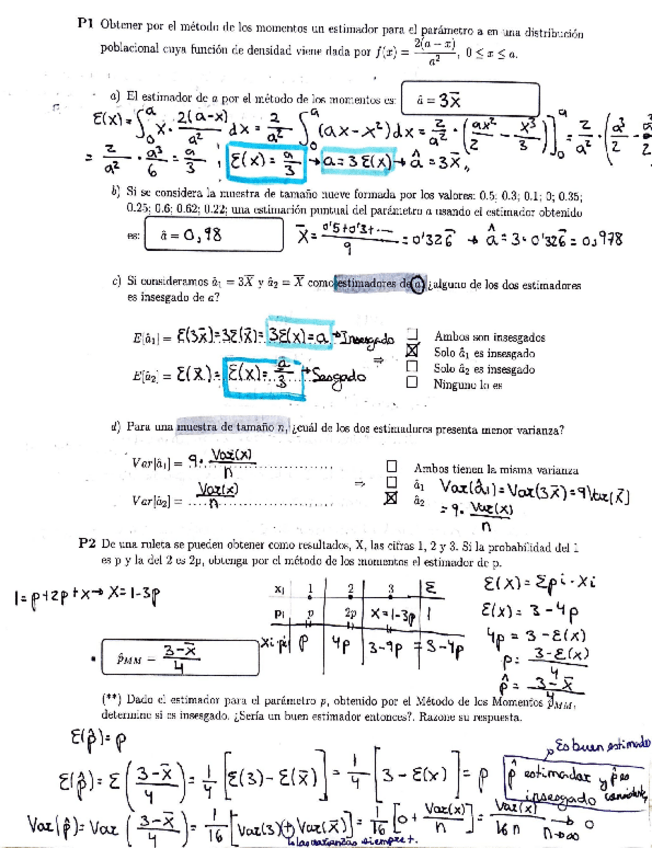 P1 Obtener por el método de los momentos un estimador para el parámetro a en una distribución
poblacional cuya función de densidad viene dada por f(x) = 2(a − x)/a², 0 ≤ x ≤ a.
a) El estimador de a por el método de los momentos es: â = 3X̄
E(x) = ∫₀ᵃ x · 2(a-x)/a² dx = 2/a² ∫₀ᵃ (ax - x²) dx = 2/a² · (ax²/2 - x³/3)]₀ᵃ = 2/a² · (a³/2 -
= 2/a² · a³/6 = a/3 ; E(x) = a/3 → a = 3E(x) → â = 3X̄
b) Si se considera la muestra de tamaño nueve formada por los valores: 0.5; 0.3; 0.1; 0; 0.35;
0.25; 0.6; 0.62; 0.22; una estimación puntual del parámetro a usando el estimador obtenido
es: â = 0,98 X̄ = 0'5+0'3+.../9 = 0'326 → â = 3·0'326 = 0,978
c) Si consideramos â₁ = 3X̄ y â₂ = X̄ como estimadores de a, ¿alguno de los dos estimadores
es insesgado de a?
E[â₁] = E(3X̄) = 3E(X̄) = 3E(x) = a → Insesgado
E[â₂] = E(X̄) = E(x) = a/3 → Sesgado
⇒
☐ Ambos son insesgados
☒ Solo â₁ es insesgado
☐ Solo â₂ es insesgado
☐ Ninguno lo es
d) Para una muestra de tamaño n, ¿cuál de los dos estimadores presenta menor varianza?
Var[â₁] = 9 · Var(x)/n
Var[â₂] = Var(x)/n
⇒
☐ Ambos tienen la misma varianza
☐ â₁ Var(â₁) = Var(3X̄) = 9Var(X̄)
☒ â₂ = 9 · Var(x)/n
P2 De una ruleta se pueden obtener como resultados, X, las cifras 1, 2 y 3. Si la probabilidad del 1
es p y la del 2 es 2p, obtenga por el método de los momentos el estimador de p.
1 = p+2p+x → x = 1-3p
xi 1 2 3 Σ
pi p 2p x = 1-3p 1
xi·pi p 4p 3-9p = 3-4p
E(x) = Σpi · xi
E(x) = 3 - 4p
4p = 3 - E(x)
p = 3 - E(x)/4
p̂ = 3 - X̄/4
p̂MM = 3 - X̄/4
(**) Dado el estimador para el parámetro p, obtenido por el Método de los Momentos p̂MM,
determine si es insesgado. ¿Sería un buen estimador entonces?. Razone su respuesta.
E(p̂) = p
Es buen estimado
E(p̂) = E(3-X̄/4) = 1/4 [E(3) - E(X̄)] = 1/4 [3 - E(x)] = p
p̂ estimador insesgado y p̂ es
Var(p̂) = Var(3-X̄/4) = 1/16 [Var(3) + Var(X̄)] = 1/16 [0 + Var(x)/n] = Var(x)/16n → 0
n→∞
las varianzas siempre +.